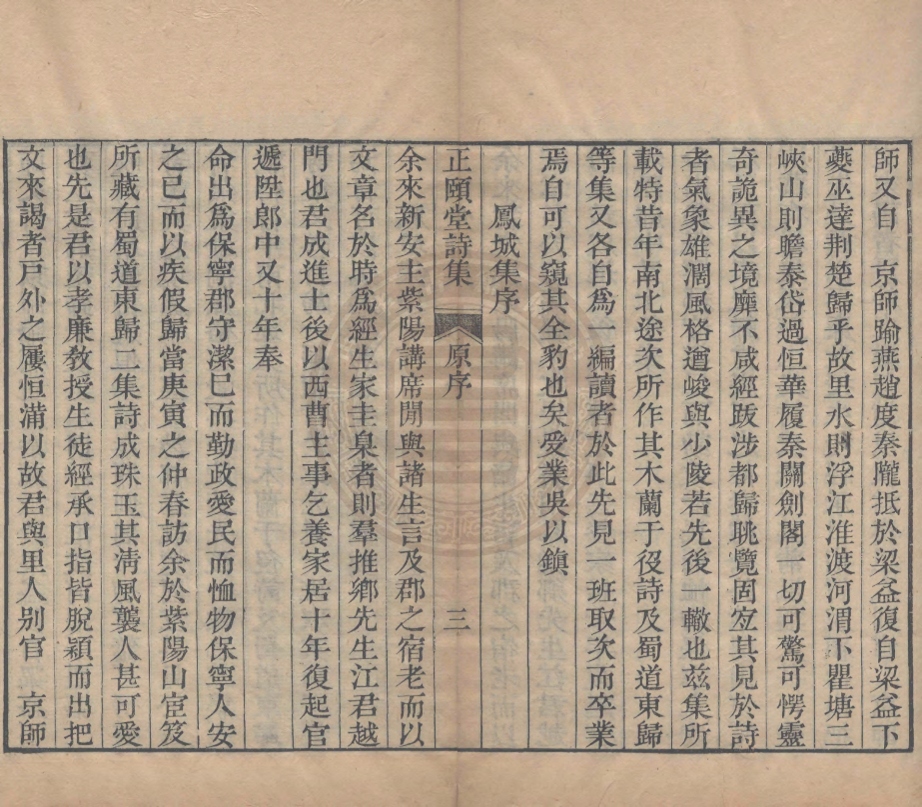 師又自　京師踰燕趙度秦隴抵於梁益復自梁益下
夔巫達荆楚歸乎故里水則浮江淮渡河渭下瞿塘三
峽山則瞻泰岱過恒華履秦關劍閣一切可驚可愕靈
奇詭異之境靡不咸經跋涉都歸眺覽固宐其見於詩
者氣象雄濶風格遒峻與少陵若先後一轍也兹集所
載特昔年南北途次所作其木蘭于役詩及蜀道東歸
等集又各自爲一編讀者於此先見一班取次而卒業
焉自可以窺其全豹也矣受業吳以鎮
鳳城集序
正頤堂詩集　原序　三
余來新安主紫陽講席閒與諸生言及郡之宿老而以
文章名於時爲經生家圭臬者則羣推鄉先生江君越
門也君成進士後以西曹主事乞養家居十年復起官
遞陞郎中又十年奉
命出爲保寧郡守潔巳而勤政愛民而恤物保寧人安
之已而以疾假歸當庚寅之仲春訪余於紫陽山宦笈
所藏有蜀道東歸二集詩成珠玉其清風襲人甚可愛
也先是君以孝廉敎授生徒經承口指皆脫穎而出把
文來謁者戸外之屨恒滿以故君與里人别官　京師